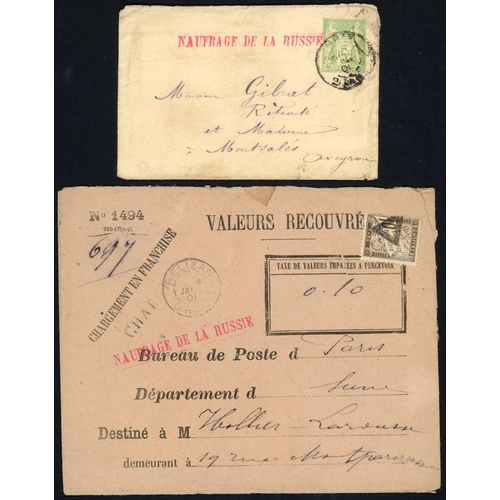 NAUFRAGE DE LA RUSSIE
Monsieur Gibrat
Retraité
et Madame
Montsalès
Aveyron
No 1494
697
VALEURS RECOUVRÉ
CHARGEMENT EN FRANCHISE
CHAR
RELIZAN
JA
01
TAXE DE VALEURS IMPAYÉES A PERCEVOIR
0.10
NAUFRAGE DE LA RUSSIE
Bureau de Poste d Paris
Département d Seine
Destiné à M Hollier-Larousse
demeurant à 19 rue Montparnasse